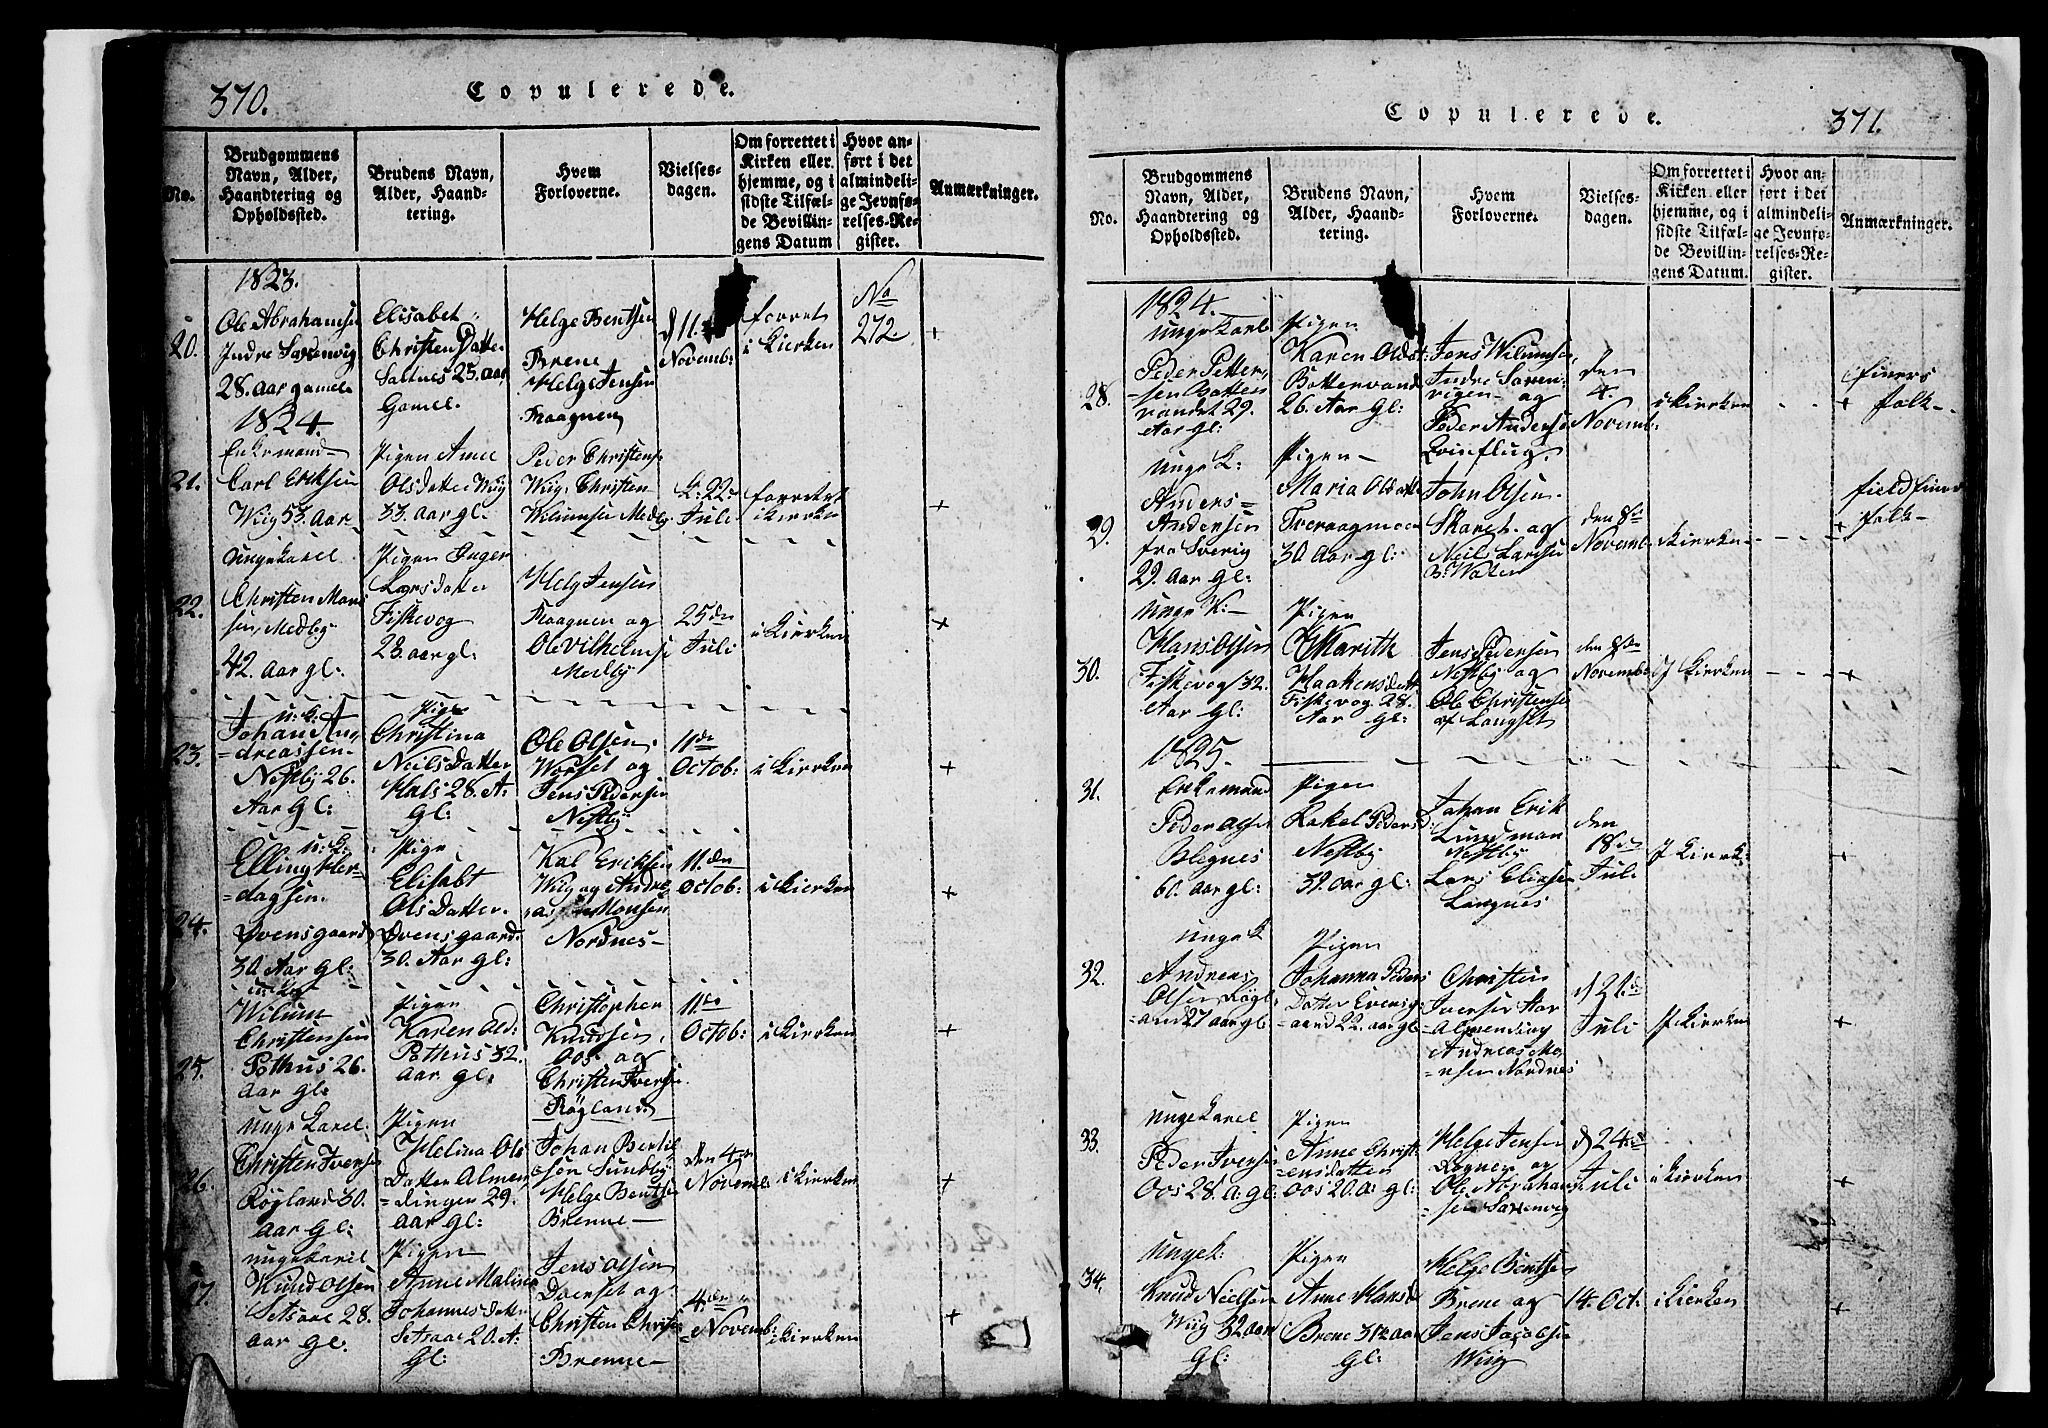 370.
Copulerede.
No.
Brudgommens
Navn, Alder,
Haandtering og
Opholdssted.
Brudens Navn,
Alder, Haand-
tering.
Hvem
Forloverne.
Vielses-
dagen.
Om forrettet i
Kirken eller
hjemme, og i
sidste Tilfæl-
de Bevillin-
gens Datum
Hvor an-
ført i det
almindeli-
ge Jevnfø-
relses-Re-
gister.
Anmærkninger.
1823.
20.
Ole Abrahamsen
Indre Saxenvig
28. Aar gamel
Elisabet
Christen Datter
Saltnes 25. aar
Gamel.
Helge Bentsen
Brene
Helge Jensen
d 11.
Novemb:
forret
i Kierken
No
272
+
1824.
21.
Enkemand
Carl Eriksen
Wiig 53. Aar
Pigen Anne
Olsdatter Wiig
33. aar gl.
Peder Christens
Wiig. Christen
Wilumsen Medby
d: 22
Juli
forrettet
i kierken
+
22.
ungekarel
Christen Mons
sen, Medby
42. aar gl:
Pigen Inger
Lars Datter
Fiskevog
23. aar gl:
Helg Jensen
og
Ole Vilhelmse
Medby
25 de
Juli
i Kierken
+
23.
u: k:
Johan An,
=dreassen
Nestby 26.
Aar Gl:
Pige
Christina
Neils Datter
Hals 28. A.
gl:
Ole Olsen
Worset og
Jens Pedersen
Nestby
11 de
Octob:
i Kierken
+
24.
u: k:
Elling Her-
=dagsen.
Øvensgaard
30. Aar Gl:
Pige
Elisabt
Ols Datter.
Øvensgaard.
30. Aar gl:
Kal Eriksen
Wiig og Andre,
Monsen
Nordnes
11. den
Octob:
i Kierken
+
25.
Wilum
Christensen
Pothus 26.
aar gl:
Pigen
Karen Old:
Pothus 32.
aar gl:
Christopher
Knudsen,
Oos og
Christen Iversen
Røgland.
11 de
Octob:
i Kierken
+
26.
unge Karel.
Christen Ivers
Røgland 30.
aar Gl:
Pigen
Helina Ols
Datter Almen,
=dingen 29.
aar gl:
Johan Bentel
sen Sundby
Helge Bentsen
Brenne
den 4de
Novemb
i kierken
+
27.
ungekarel
Knud Olsen
Setsaae 28.
aar gl:
Pigen
Anne Malina
Johannes Datter
Setsaae 20. A:
Gl:
Jens Olsen
Dverset og
Christen Christen
Brenne
4. den
Novemb:
i kierken
+
Copulerede.
371.
No.
Brudgommens
Navn, Alder,
Haandtering og
Opholdssted.
Brudens Navn,
Alder, Haand-
tering.
Hvem
Forloverne.
Vielses-
dagen.
Om forrettet i
Kirken eller
hjemme, og i
sidste Tilfæl-
de Bevillin-
gens Datum.
Hvor an-
ført i det
almindeli-
ge Jevnfø-
relses-Re-
gister.
Anmærkninger.
1824.
28.
unge Karl
Peder Petter,
sen Botten
vandet 29.
Aar Gl:
Pigen
Karen Oldat:
Bottervand
26. Aar Gl:
Jens Wilumsen,
Indre Saxen-
vigen og
Peder Andersen
Qvinflug.
den
4.
Novemb:
i kierken
+
finers
folk
29.
unge k:
Anders
Andersen
fra Sverig
29. Aar gl:
Pigen
Maria Oldatt
Tveraagmoen
30 Aar gl:
John Olsen.
Skaret og
Neils Larsen
den 8de
Novemb
i kierken
+
field finers
folk
30.
unge K:
Hans Olsen
Fiskevog 32.
Aar Gl:
Pigen
Marith
Haakensdatt
Fiskevog 28.
Aar Gl:
Jens Pedersen
Nestby og
Ole Christense
af Langset
den 8de
Novemb
I Kierken
+
1825.
31.
Enkemand
Peder Olsen
Blegnes
60. aar gl:
Pigen
Rakel Peders d:
Nestby
39. aar gl:
Johan Erik
Lundman
Nestby
Lars Eliasen
Langnes
den
18 de
Juli
I Kierk:
+
32.
unge k
Andreas
Olsen Røgl,
=and 27 aar gl:
Pigen
Johanna Peders
Datter Evensg,
=aard 22. aar gl:
Christen
Iversen
Almending
Andreas Mo,
=nsen Nordnes
d 21. de
Juli
I kierken
+
33.
unge karel
Peder Iversen
Oos 28. a: gl:
Pigen
Anne Christ
=ensdatter
Oos 20. a: gl:
Helge Jensen
og
Ole Abraham
=sen Saxenvig
d 24 de
Juli
i kierken
+
34.
unge k:
Knud Nielsen
Wiig 32 aar
Gl:
Pigen
Anne Hans d
Brene 31½ aar
Gl:
Helge Bentsen
Brene og
Jens Jacobsen
Wiig
14. Oct.
i Kierken
+